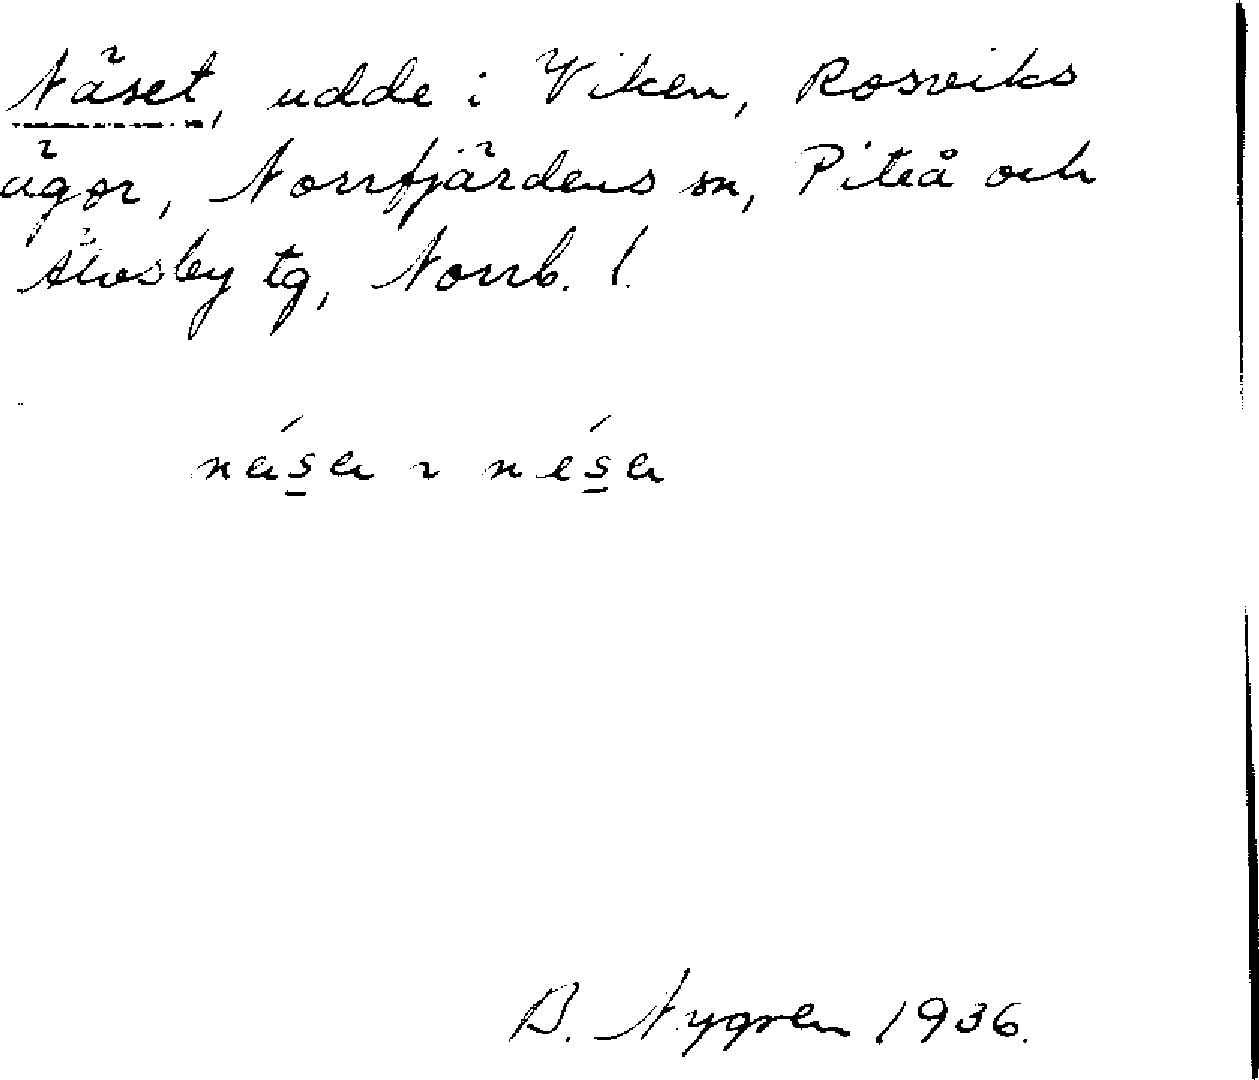 Näset, udde i Viken, Rosviks
ägor, Norrfjärdens sn, Piteå och
Älvsby tg, Norrb. l.
nási ~ nésa
B. Nygren 1936.